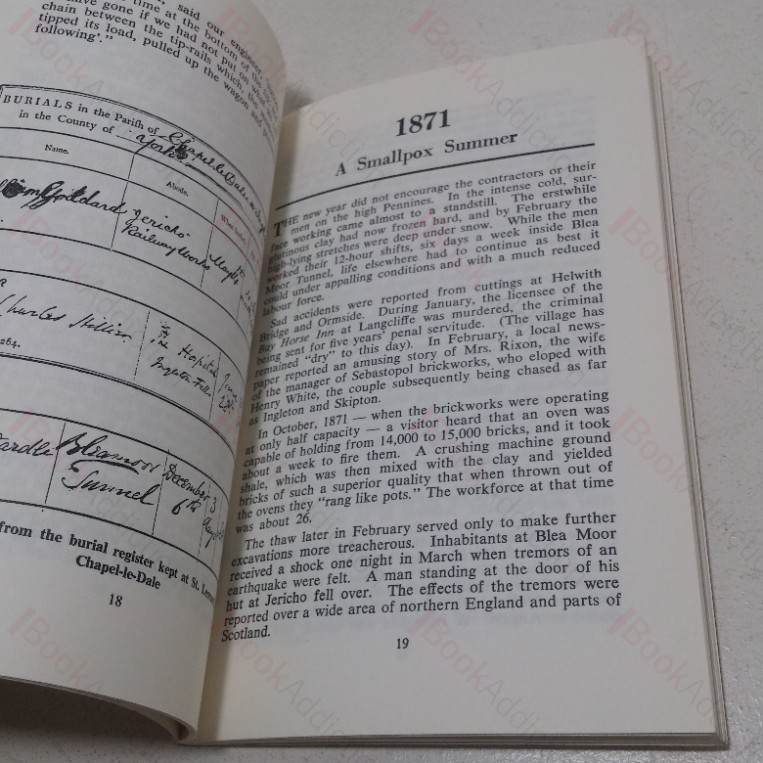 said our engineer,
time at the bottom of the
have gone if we had not put on
chain between the tip-rails which,
tipped its load, pulled up the wagon and
following'."
BURIALS in the Parish of Chapel le Dale
in the County of York
Name.
Abode.
Goddard
Jericho
Railway Works
May
Charles Skillin
Hospital
Ingleton Fells
264.
Bleamoor
Tunnel
December
6th
from the burial register kept at St.
Chapel-le-Dale
18
1871
A Smallpox Summer
THE new year did not encourage the contractors or their
men on the high Pennines. In the intense cold, sur-
face working came almost to a standstill. The erstwhile
glutinous clay had now frozen hard, and by February the
high-lying stretches were deep under snow. While the men
worked their 12-hour shifts, six days a week inside Blea
Moor Tunnel, life elsewhere had to continue as best it
could under appalling conditions and with a much reduced
labour force.
Sad accidents were reported from cuttings at Helwith
Bridge and Ormside. During January, the licensee of the
Bay Horse Inn at Langcliffe was murdered, the criminal
being sent for five years' penal servitude. (The village has
remained "dry" to this day). In February, a local news-
paper reported an amusing story of Mrs. Rixon, the wife
of the manager of Sebastopol brickworks, who eloped with
Henry White, the couple subsequently being chased as far
as Ingleton and Skipton.
In October, 1871 — when the brickworks were operating
at only half capacity — a visitor heard that an oven was
capable of holding from 14,000 to 15,000 bricks, and it took
about a week to fire them. A crushing machine ground
shale, which was then mixed with the clay and yielded
bricks of such a superior quality that when thrown out of
the ovens they "rang like pots." The workforce at that time
was about 26.
The thaw later in February served only to make further
excavations more treacherous. Inhabitants at Blea Moor
received a shock one night in March when tremors of an
earthquake were felt. A man standing at the door of his
hut at Jericho fell over. The effects of the tremors were
reported over a wide area of northern England and parts of
Scotland.
19